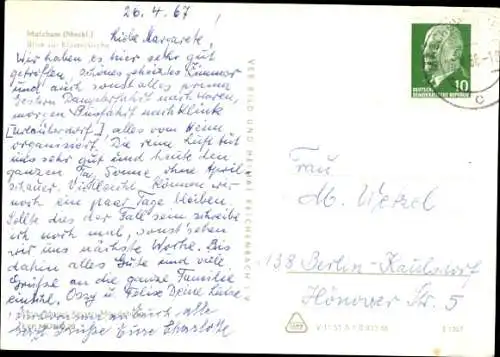 26.4.67
Malchow (Meckl.)
Blick zur Klosterkirche
Liebe Margarete,
Wir haben es hier sehr gut
getroffen, schönes geheiztes Zimmer
und auch sonst alles prima
Gestern Dampferfahrt nach Waren,
morgen Busfahrt nach Klink
(Urlauberdorf), alles vom Heim
organisiert. Die reine Luft tut
uns sehr gut und heute den
ganzen Tag Sonne, ohne April
schauer. Vielleicht können wir
noch ein paar Tage bleiben.
Sollte dies der Fall sein schreibe
ich noch mal, sonst sehen
wir uns nächste Woche. Bis
dahin alles Gute und viele
Grüße an die ganze Familie
einschl. Ossy und Felix Deine Liebe
auch alle
Grüße Eure Charlotte
VEB BILD UND HEIMAT REICHENBACH I. V.
DEUTSCHE
DEMOKRATISCHE REPUBLIK
10
c
Frau
M. Wetzel
138 Berlin-Kaulsdorf
Hönower Str. 5